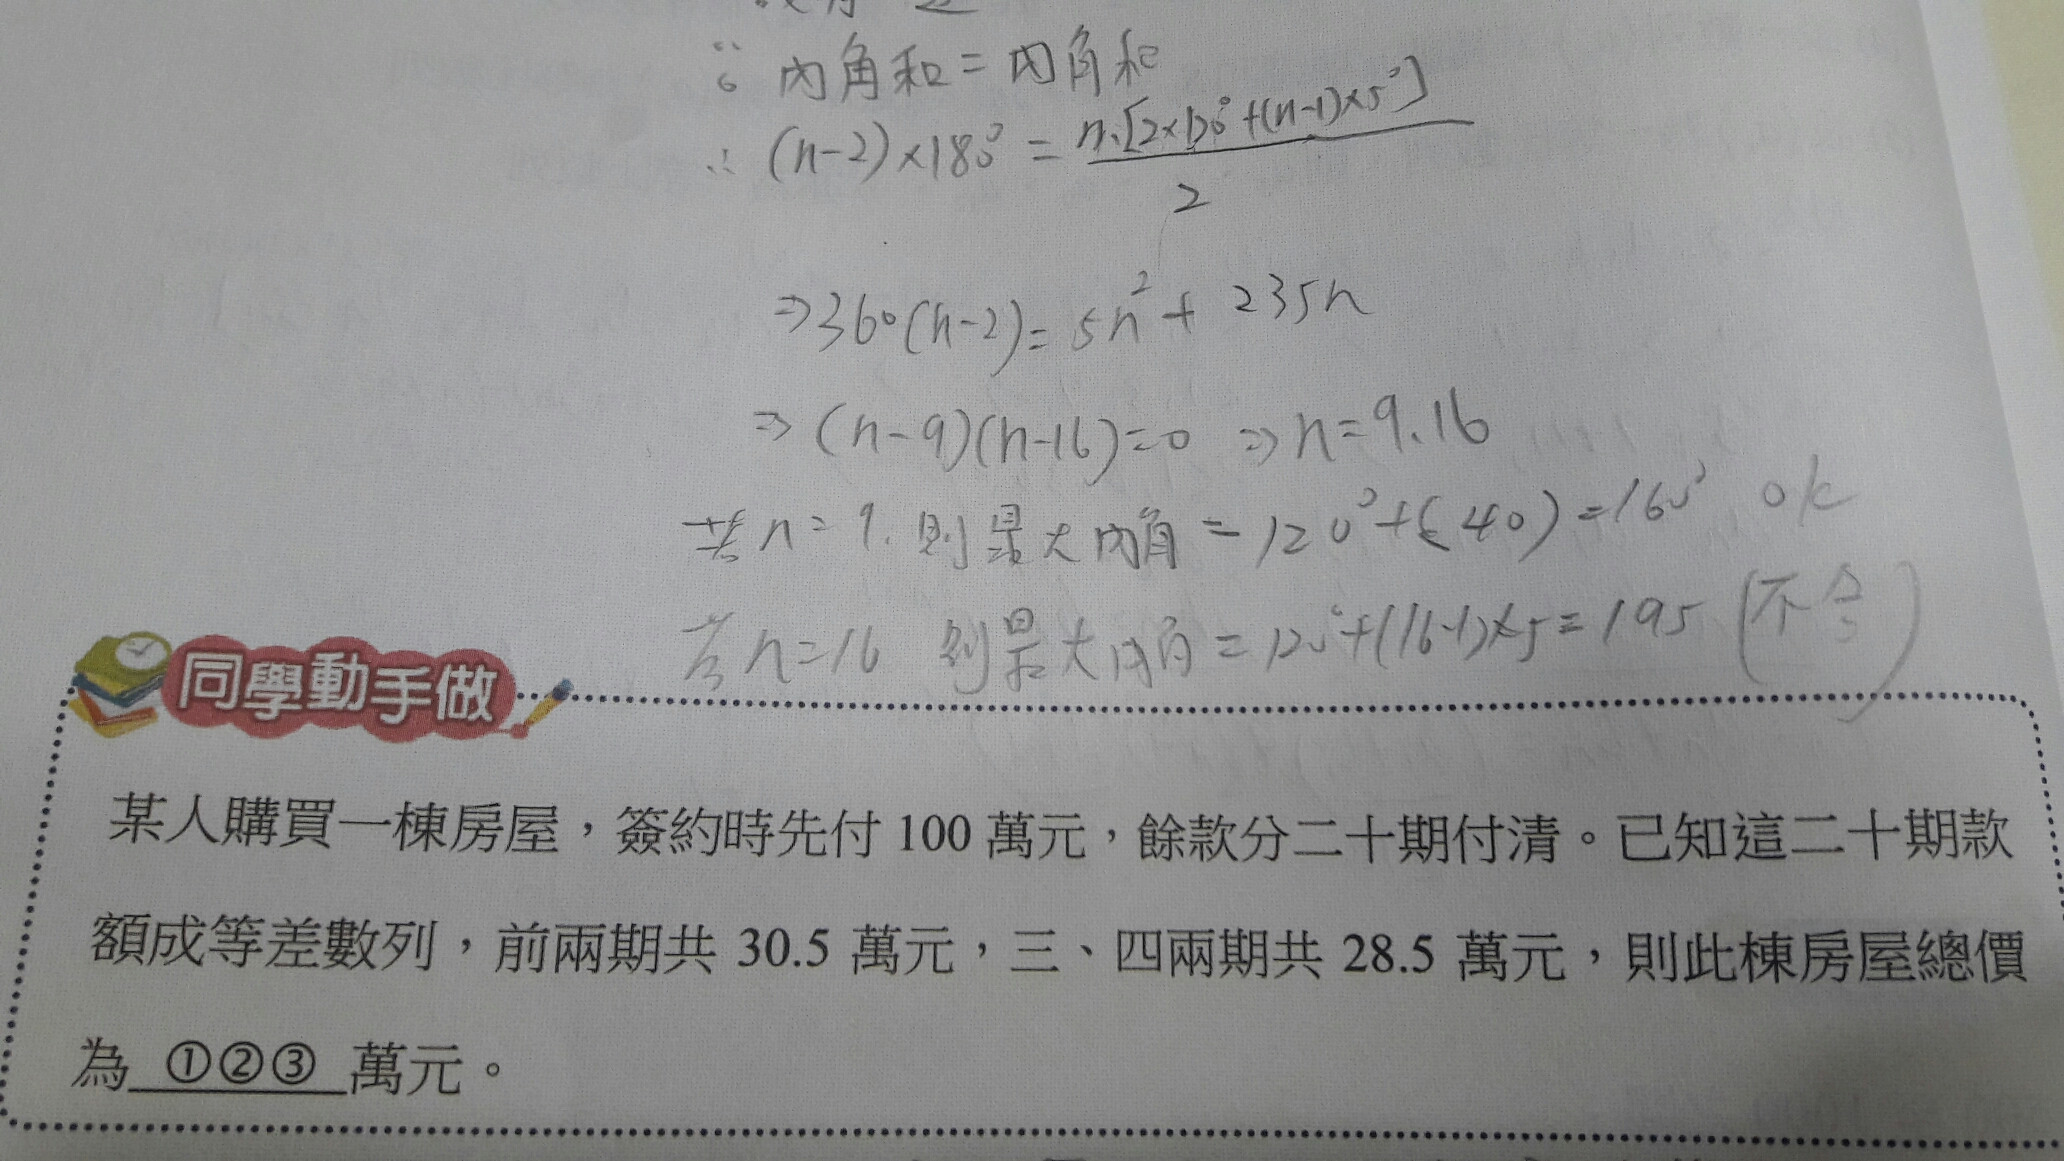 ∵ 內角和 = 內角和
∴ (n-2)×180° = n·[2×120°+(n-1)×5°]
2
⇒360(n-2)= 5n²+ 235n
⇒ (n-9)(n-16)=0 ⇒ n=9.16
若 n=9. 則最大內角 = 120°+(40)=160° ok
若 n=16 則最大內角 = 120°+(16-1)×5=195 (不合)
同學動手做
某人購買一棟房屋，簽約時先付 100 萬元，餘款分二十期付清。已知這二十期款
額成等差數列，前兩期共 30.5 萬元，三、四兩期共 28.5 萬元，則此棟房屋總價
為 ①②③ 萬元。